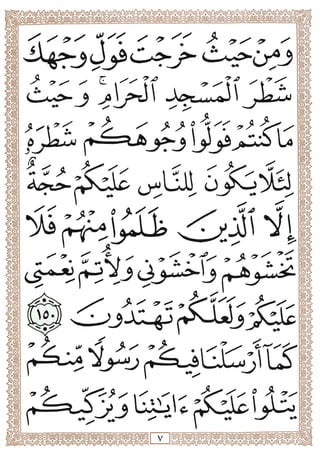 وَمِنْ حَيْثُ خَرَجْتَ فَوَلِّ وَجْهَكَ
شَطْرَ ٱلْمَسْجِدِ ٱلْحَرَامِ ۚ وَحَيْثُ
مَا كُنتُمْ فَوَلُّوا۟ وُجُوهَكُمْ شَطْرَهُۥ
لِئَلَّا يَكُونَ لِلنَّاسِ عَلَيْكُمْ حُجَّةٌ
إِلَّا ٱلَّذِينَ ظَلَمُوا۟ مِنْهُمْ فَلَا
تَخْشَوْهُمْ وَٱخْشَوْنِى وَلِأُتِمَّ نِعْمَتِى
عَلَيْكُمْ وَلَعَلَّكُمْ تَهْتَدُونَ ١٥٠
كَمَآ أَرْسَلْنَا فِيكُمْ رَسُولًا مِّنكُمْ
يَتْلُوا۟ عَلَيْكُمْ ءَايَٰتِنَا وَيُزَكِّيكُمْ
٧